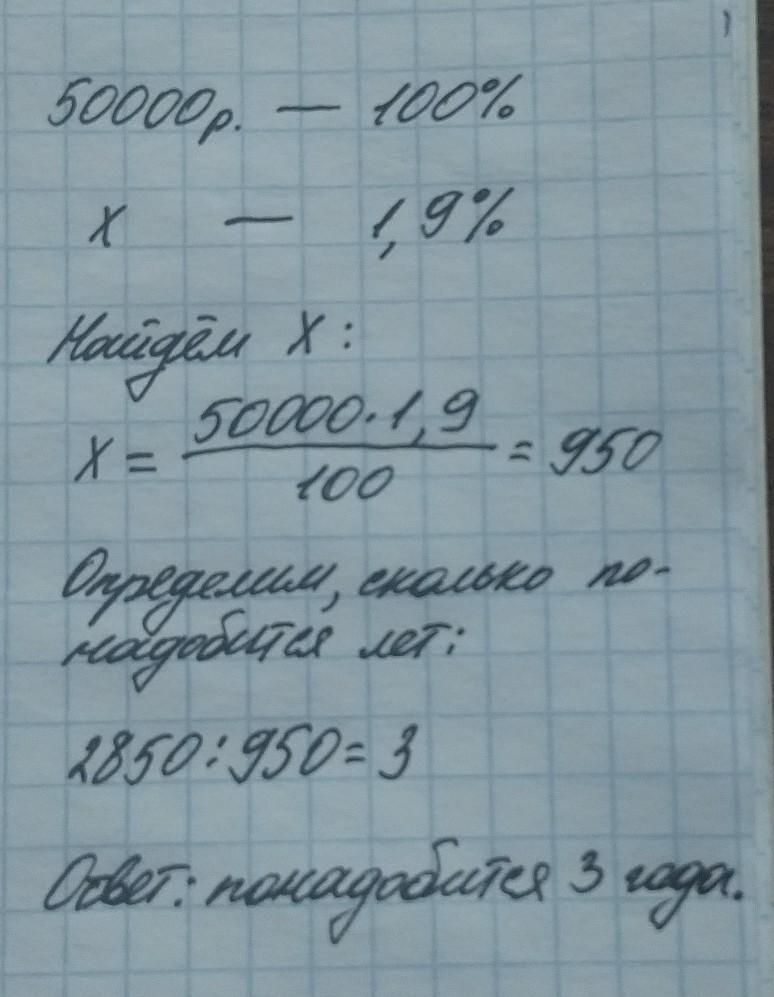 50000р. — 100%
х — 1,9%
Найдём х:
х = 50000·1,9 / 100 = 950
Определим, сколько по-
надобится лет:
2850:950=3
Ответ: понадобится 3 года.